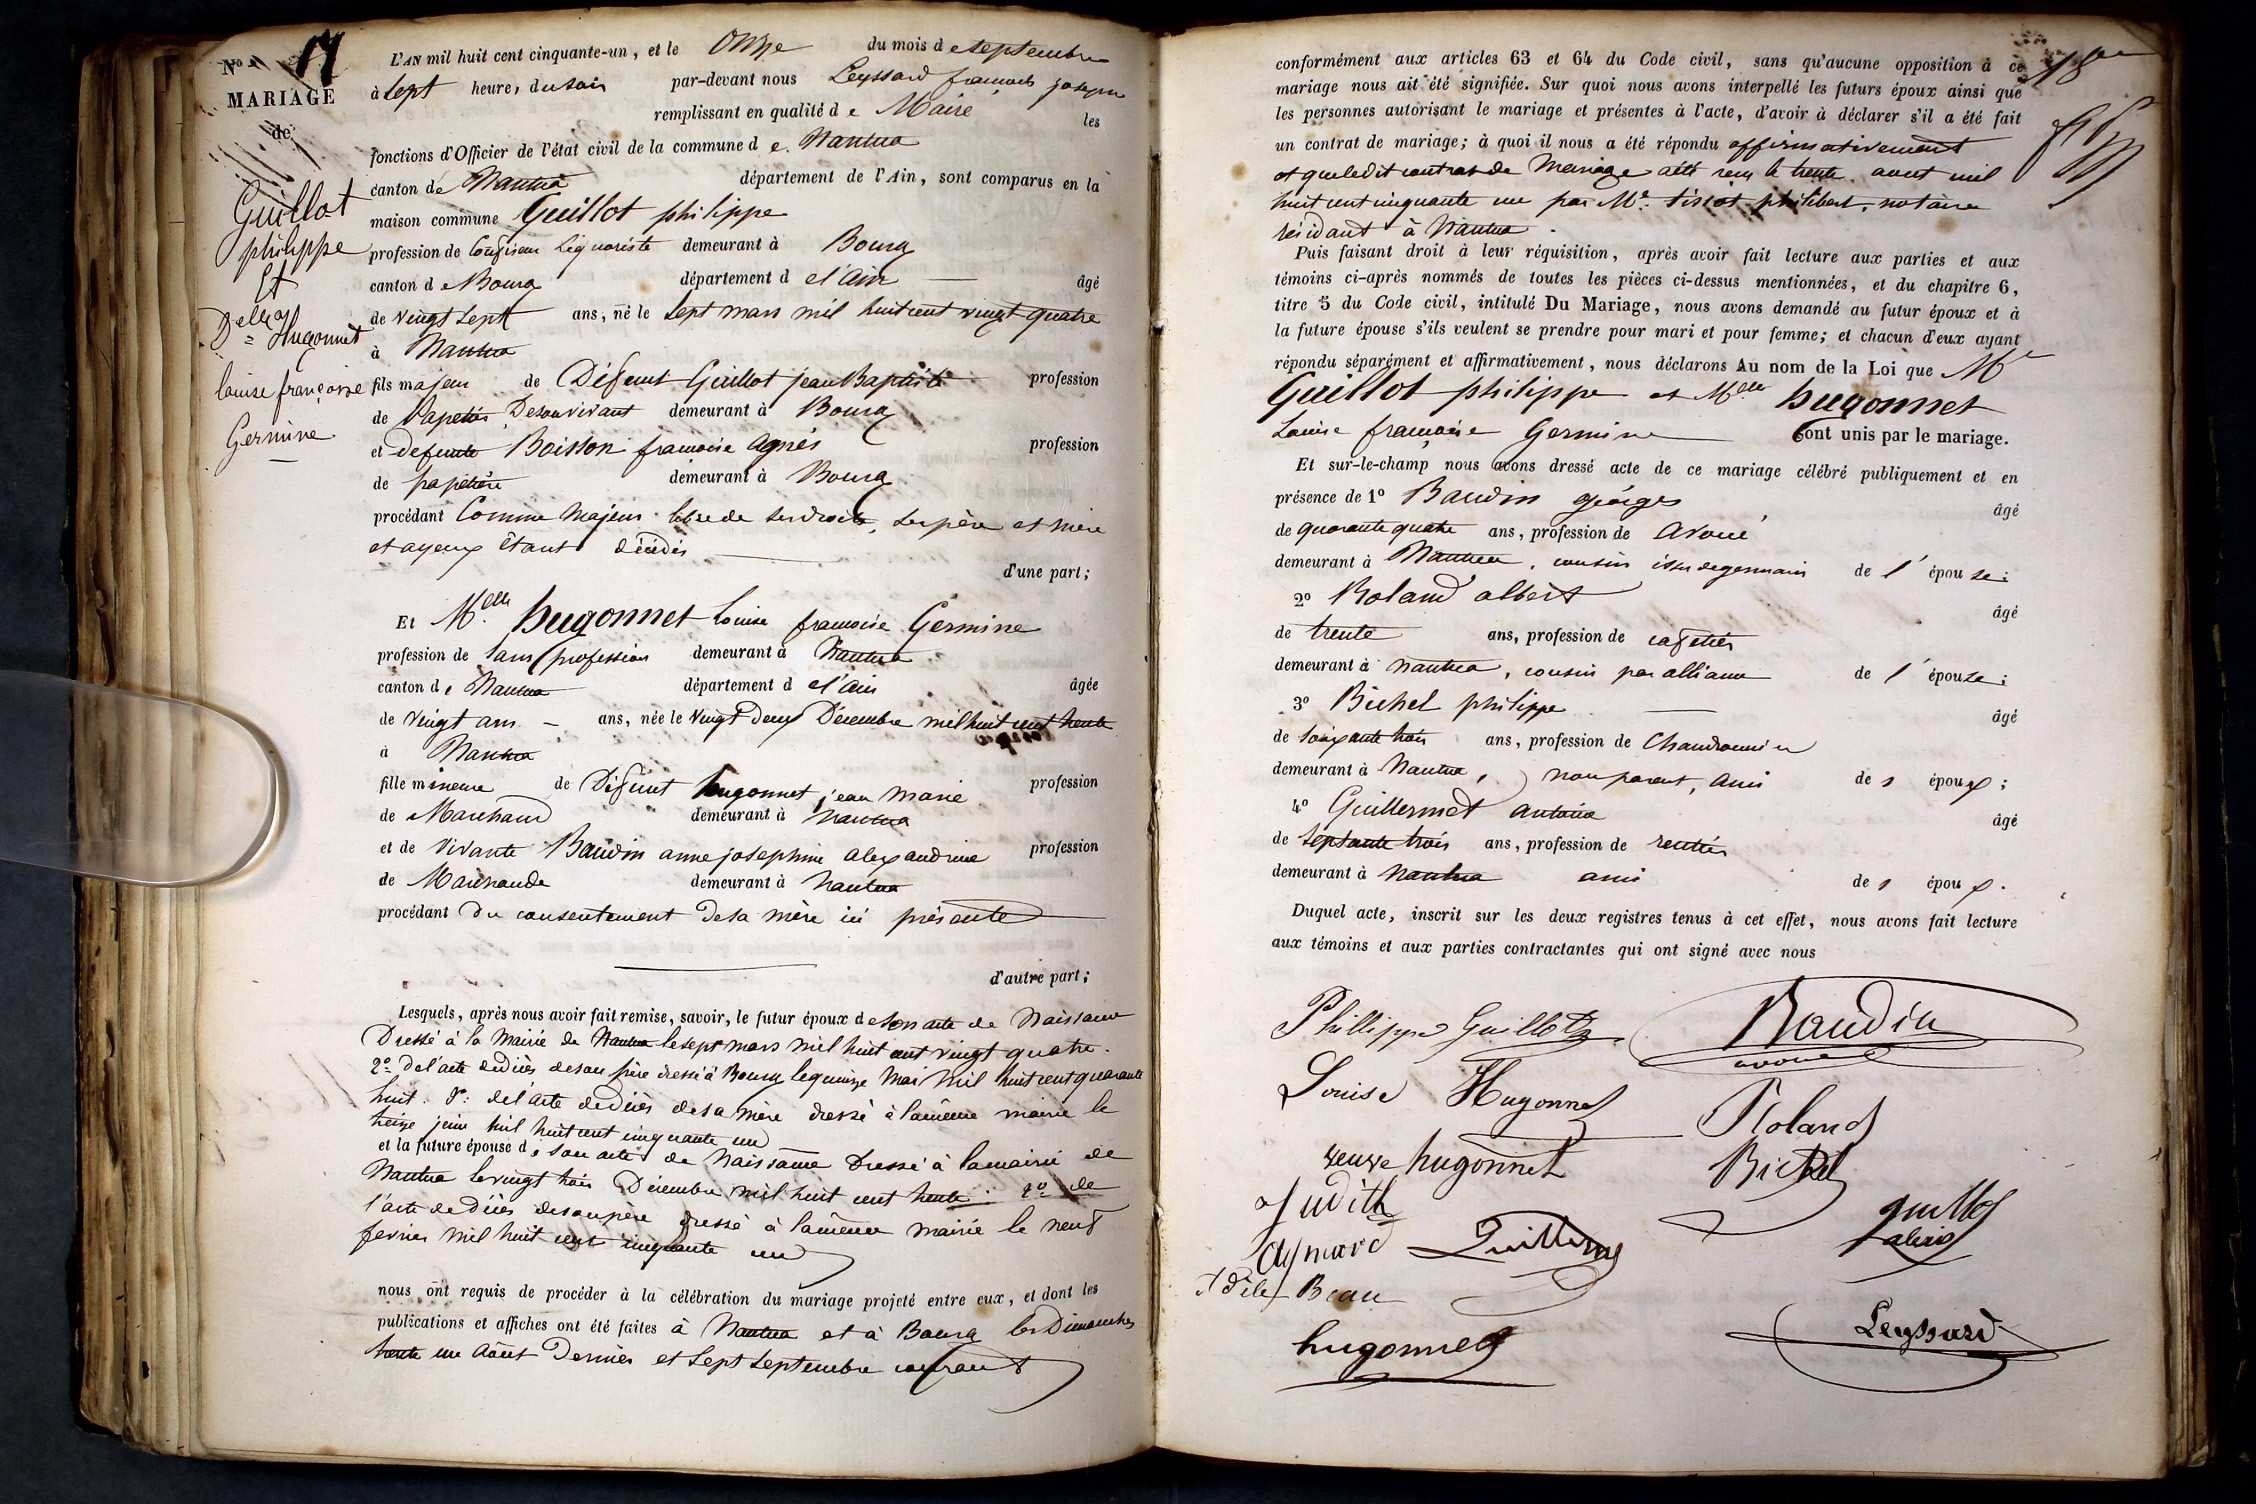 No 17
MARIAGE
de
Guillot
philippe
Et
Delle Hugonnet
louise françoise
Germine
L'AN mil huit cent cinquante-un, et le Onze du mois de septembre
à sept heures du soir par-devant nous Leyssard francois joseph
remplissant en qualité de Maire les
fonctions d'Officier de l'état civil de la commune de Nantua
canton de Nantua département de l'Ain, sont comparus en la
maison commune Guillot philippe
profession de Confiseur Liquoriste demeurant à Bourg
canton de Bourg département de l'ain âgé
de vingt sept ans, né le sept mars mil huit cent vingt quatre
à Nantua
fils majeur de Défunt Guillot jean Baptiste profession
de Papetier De son vivant demeurant à Bourg
et defunte Boisson francoise Agnés profession
de papetière demeurant à Bourg
procédant Comme Majeur libre de ses droits, ses père et mère
et ayeux étant décédés
d'une part;
Et Melle hugonnet Louise francoise Germine
profession de sans profession demeurant à Nantua
canton de Nantua département de l'ain âgée
de vingt ans ans, née le vingt deux Décembre mil huit cent trente
à Nantua
fille mineure de Défunt hugonnet jean Marie profession
de Marchand demeurant à Nantua
et de vivante Baudin anne josephine alexandrine profession
de Marchande demeurant à Nantua
procédant du consentement de sa mère ici présente
d'autre part;
Lesquels, après nous avoir fait remise, savoir, le futur époux de son acte de Naissance
Dressé à la Mairie de Nantua le sept mars mil huit cent vingt quatre.
2o de l'acte de décès de son père dressé à Bourg le quinze Mai mil huit cent quarante
huit. 3o: de l'acte de décès de sa mère dressé à la même mairie le
treize juin mil huit cent cinquante un
et la future épouse de son acte de Naissance Dressé à la mairie de
Nantua le vingt trois Décembre mil huit cent trente: 2o de
l'acte de décès de son père dressé à la même mairie le neuf
fevrier mil huit cent cinquante un
nous ont requis de procéder à la célébration du mariage projeté entre eux, et dont les
publications et affiches ont été faites à Nantua et à Bourg les Dimanches
trente un Août Dernier et sept septembre courant
conformément aux articles 63 et 64 du Code civil, sans qu'aucune opposition à ce
mariage nous ait été signifiée. Sur quoi nous avons interpellé les futurs époux ainsi que
les personnes autorisant le mariage et présentes à l'acte, d'avoir à déclarer s'il a été fait
un contrat de mariage; à quoi il nous a été répondu affirmativement
et que ledit contrat de Mariage a été reçu le trente aout mil
huit cent cinquante un par Me. tissot philibert, notaire
résidant à Nantua.
Puis faisant droit à leur réquisition, après avoir fait lecture aux parties et aux
témoins ci-après nommés de toutes les pièces ci-dessus mentionnées, et du chapitre 6,
titre 5 du Code civil, intitulé Du Mariage, nous avons demandé au futur époux et à
la future épouse s'ils veulent se prendre pour mari et pour femme; et chacun d'eux ayant
répondu séparément et affirmativement, nous déclarons Au nom de la Loi que Mr
Guillot philippe et Melle hugonnet
Louise françoise Germine sont unis par le mariage.
Et sur-le-champ nous avons dressé acte de ce mariage célébré publiquement et en
présence de 1o Baudin georges âgé
de quarante quatre ans, profession de avoué
demeurant à Nantua, cousin issu de germain de l'épouse;
2o Roland albert âgé
de trente ans, profession de cafetier
demeurant à Nantua, cousin par alliance de l'épouse;
3o Bichet philippe âgé
de soixante trois ans, profession de Chaudronnier
demeurant à Nantua, non parent, ami des époux;
4o Guillermet antoine âgé
de septante trois ans, profession de rentier
demeurant à Nantua ami des époux.
Duquel acte, inscrit sur les deux registres tenus à cet effet, nous avons fait lecture
aux témoins et aux parties contractantes qui ont signé avec nous
Phillippe Guillot Baudin
avoué
Louise Hugonnet Roland
veuve hugonnet Bichet
Judith
Aymard
guillot
Beau
hugonnet Leyssard